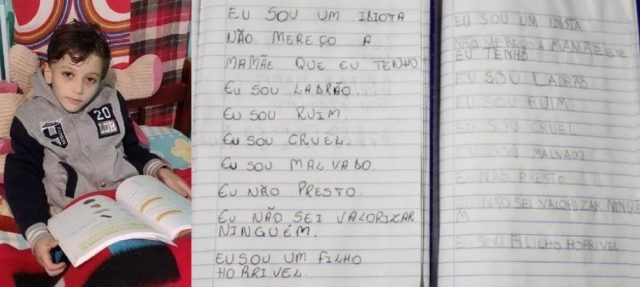 20
LDR
EU SOU UM IDIOTA
NÃO MEREÇO A
MAMÃE QUE EU TENHO
EU SOU LADRÃO.
EU SOU RUIM
EU SOU CRUEL.
EU SOU MALVADO.
EU NÃO PRESTO
EU NÃO SEI VALORIZAR
NINGUÉM.
EU SOU UM FILHO
HORRIVEL.
EU SOU UM IDIOTA
NÃO MEREÇO A MAMÃE QUE
EU TENHO
EU SOU LADRÃO
EU SOU RUIM
EU SOU CRUEL
EU SOU MALVADO
EU NÃO PRESTO
EU NÃO SEI VALORIZAR NINGUE
M
EU SOU FILILHO HORRIVEL